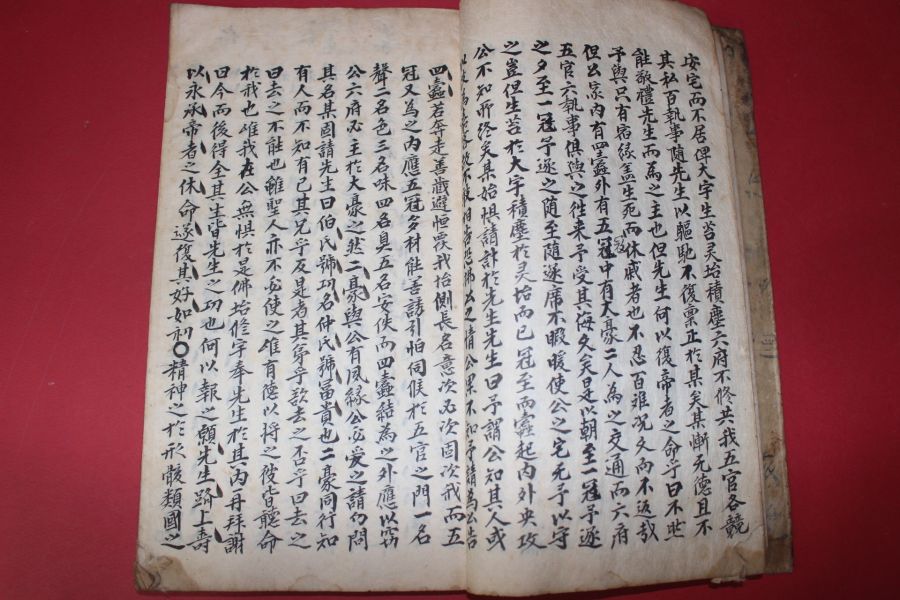 安宅而不居碑大宇生苔灵坮積塵六府不修共我五官各競
其私百執事随先生以驅馳不復禀正於某矣某慚元德且不
能敬禮先生而為之主也但先生何以復帝者之命乎曰不然
予與只有宿緣盖生死而休戚者也不忍百难况久而不返哉
但公家内有四蠧外有五冠中有大豪二人為之交通而六府
五官六執事俱與之徃來予受其海久矣是以朝至一冠予遂
之夕至一冠予遂之随至随遂席不暇暖使公之宅无予以守
之豈但生苔於大宇積塵於灵坮而已冠至而蠧起内外央攻
公不知所終矣某始惧請訃於先生先生曰予謂公知其人或
四蠧若奔走善藏避恒覆我坮側長名意次必次固次我而五
冠又為之内應五冠多材能善誘引怕伺候於五官之門一名
聲二名色三名味四名臭五名安佚而四蠧結為之外應以窃
公六府必主於大豪之然二豪與公有夙緣公必爱之請仍問
其名某固請先生曰伯氏號功名仲氏號冨貴也二豪同行知
有人而不知有己其兄乎反是者其弟乎欤去之否乎曰去之
曰去之不能也雖聖人亦不必使之难有德以將之彼皆聽命
於我也难我在公無惧於是佛坮修宇奉先生於其内再拜謝
曰今而後得全其生皆先生之功也何以報之願先生路上壽
以永承帝者之休命遂復其好如初〇精神之於形骸類國之